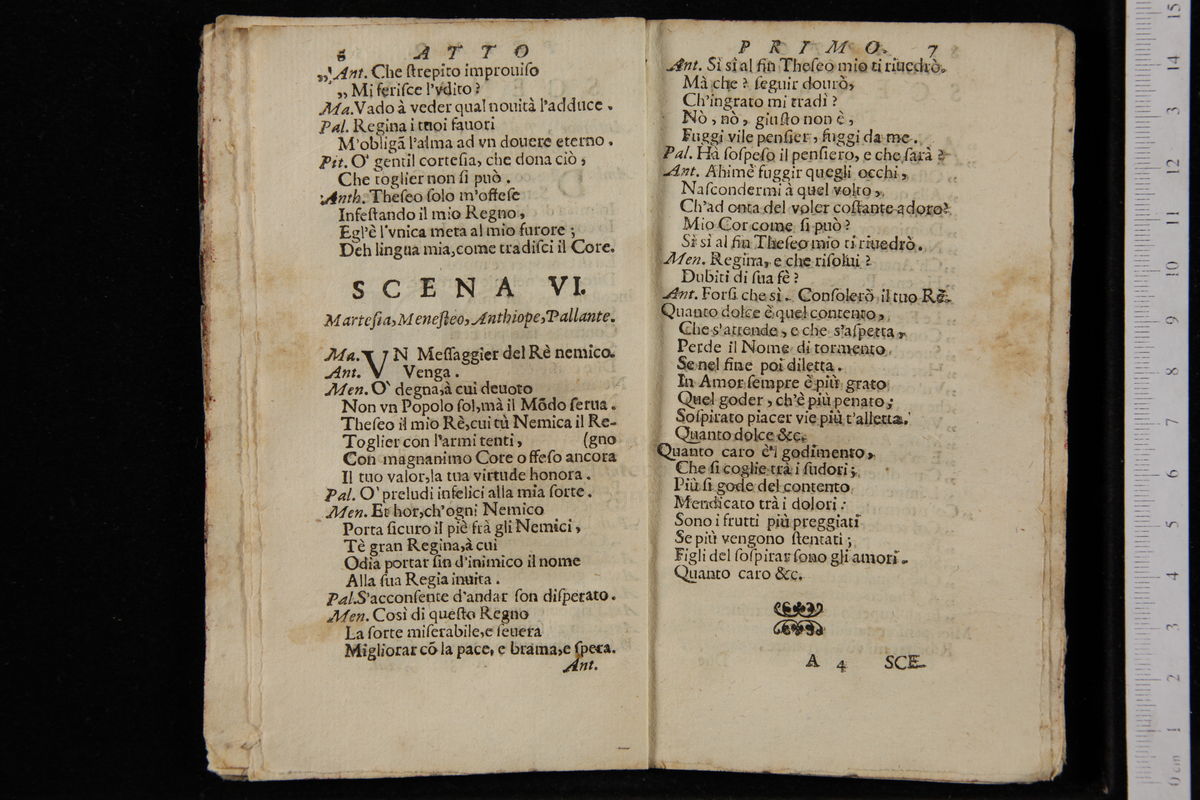 6 ATTO
„ Ant. Che ſtrepito improuiſo
„ Mi feriſce l'vdito ?
Ma. Vado à veder qual nouità l'adduce .
Pal. Regina i tuoi fauori
M'obligã l'alma ad vn douere eterno .
Pit. O' gentil corteſia, che dona ciò ,
Che toglier non ſi può .
Anth. Theſeo ſolo m'offeſe
Infeſtando il mio Regno ,
Egl'è l'vnica meta al mio furore ;
Deh lingua mia, come tradiſci il Core.
SCENA VI.
Marteſia, Meneſteo, Anthiope, Pallante.
Ma. VN Meſſaggier del Rè nemico.
Ant. Venga .
Men. O' degna, à cui deuoto
Non vn Popolo ſol, mà il Mõdo ſerua .
Theſeo il mio Rè, cui tù Nemica il Re-
Toglier con l'armi tenti , (gno
Con magnanimo Core offeſo ancora
Il tuo valor, la tua virtude honora .
Pal. O' preludi infelici alla mia ſorte .
Men. Et hor, ch'ogni Nemico
Porta ſicuro il piè frà gli Nemici ,
Tè gran Regina, à cui
Odia portar ſin d'inimico il nome
Alla ſua Regia inuita .
Pal. S'acconſente d'andar ſon diſperato .
Men. Così di queſto Regno
La ſorte miſerabile, e ſeuera
Migliorar cõ la pace, e brama, e ſpera.
Ant.
PRIMO. 7
Ant. Sì sì al fin Theſeo mio ti riuedrò.
Mà che ? ſeguir dourò,
Ch'ingrato mi tradì ?
Nò , nò , giuſto non è ,
Fuggi vile penſier , fuggi da me .
Pal. Hà ſoſpeſo il penſiero, e che ſarà ?
Ant. Ahimè fuggir quegli occhi ,
Naſcondermi à quel volto ,
Ch'ad onta del voler coſtante adoro?
Mio Cor come ſi può ?
Sì sì al fin Theſeo mio ti riuedrò .
Men. Regina, e che riſolui ?
Dubiti di ſua fè ?
Ant. Forſi che sì . Conſolerò il tuo Rè.
Quanto dolce è quel contento ,
Che s'attende , e che s'aſpetta ,
Perde il Nome di tormento
Se nel fine poi diletta .
In Amor ſempre è più grato
Quel goder , ch'è più penato ;
Soſpirato piacer vie più t'alletta.
Quanto dolce &c.
Quanto caro è'l godimento ,
Che ſi coglie trà i ſudori ;
Più ſi gode del contento
Mendicato trà i dolori :
Sono i frutti più preggiati
Se più vengono ſtentati ;
Figli del ſoſpirar ſono gli amori .
Quanto caro &c.
A 4 SCE-
0 cm 1 2 3 4 5 6 7 8 9 10 11 12 13 14 15